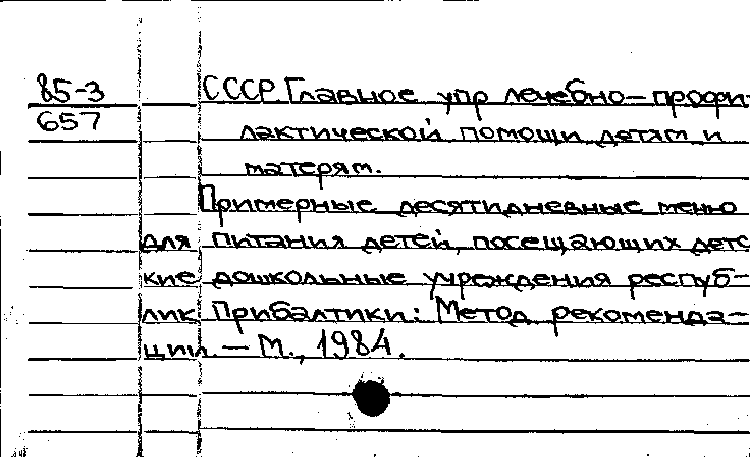 85-3
657
СССР. Главное упр лечебно-профи-
лактической помощи детям и
матерям.
Примерные десятидневные меню
для питания детей, посещающих детс
кие дошкольные учреждения респуб-
лик Прибалтики: Метод рекоменда-
ции. — М., 1984.